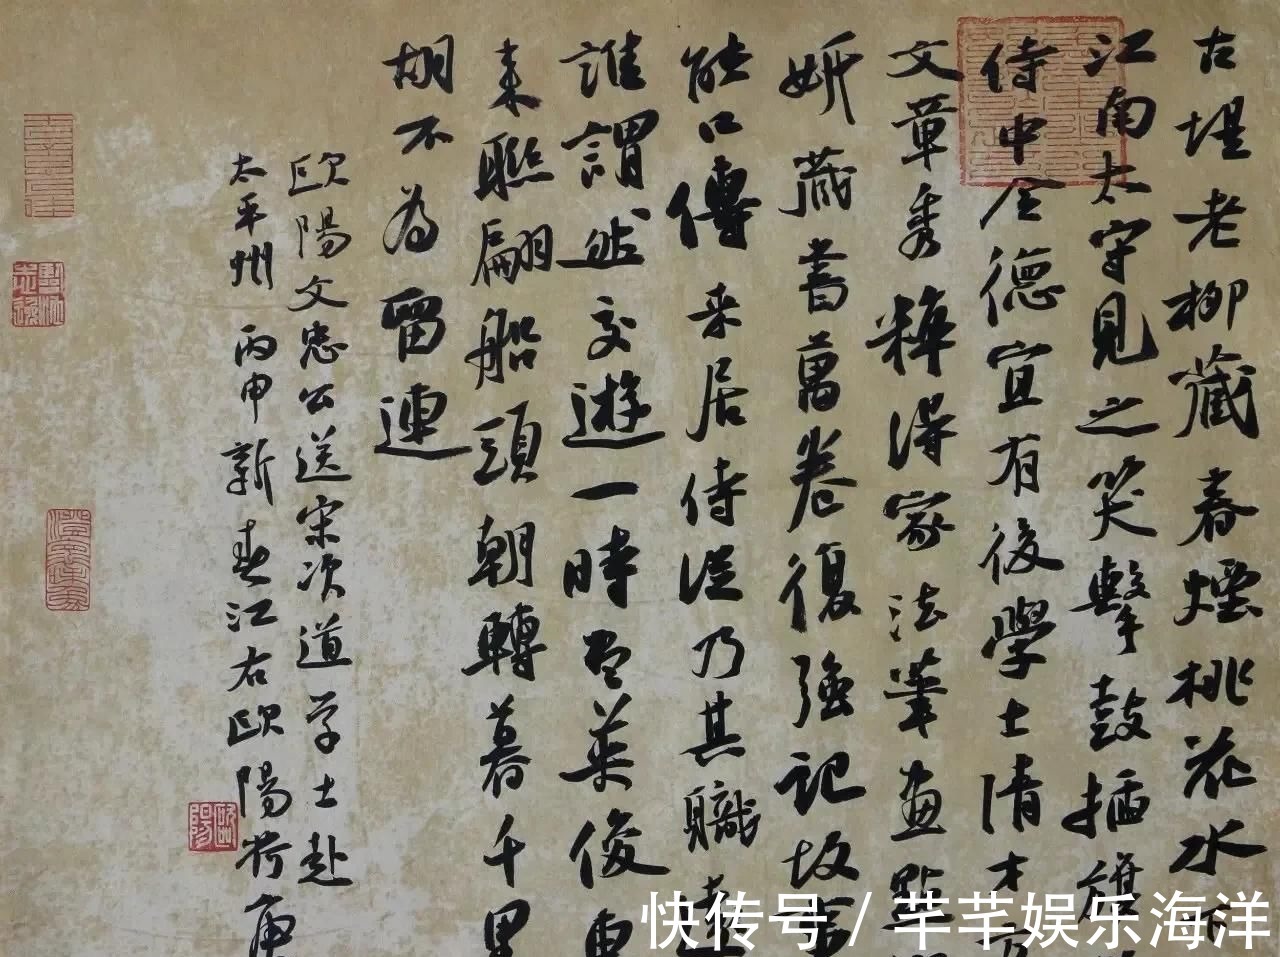 古堤老柳藏春煙桃花水下
江南太守見之笑擊鼓插旗
侍中令德宜有後學士清才方
文章秀粹得家法筆畫點
妍藏書萬卷復強記故事
能口傳来居侍從乃其職遠
誰謂然交遊一時盡英俊車
来聯翩船頭朝轉暮千里
胡不為留連
歐陽文忠公送宋次道学士赴
太平州 丙申新春江右歐陽荷庚
歐陽
快传号 / 芊芊娱乐海洋